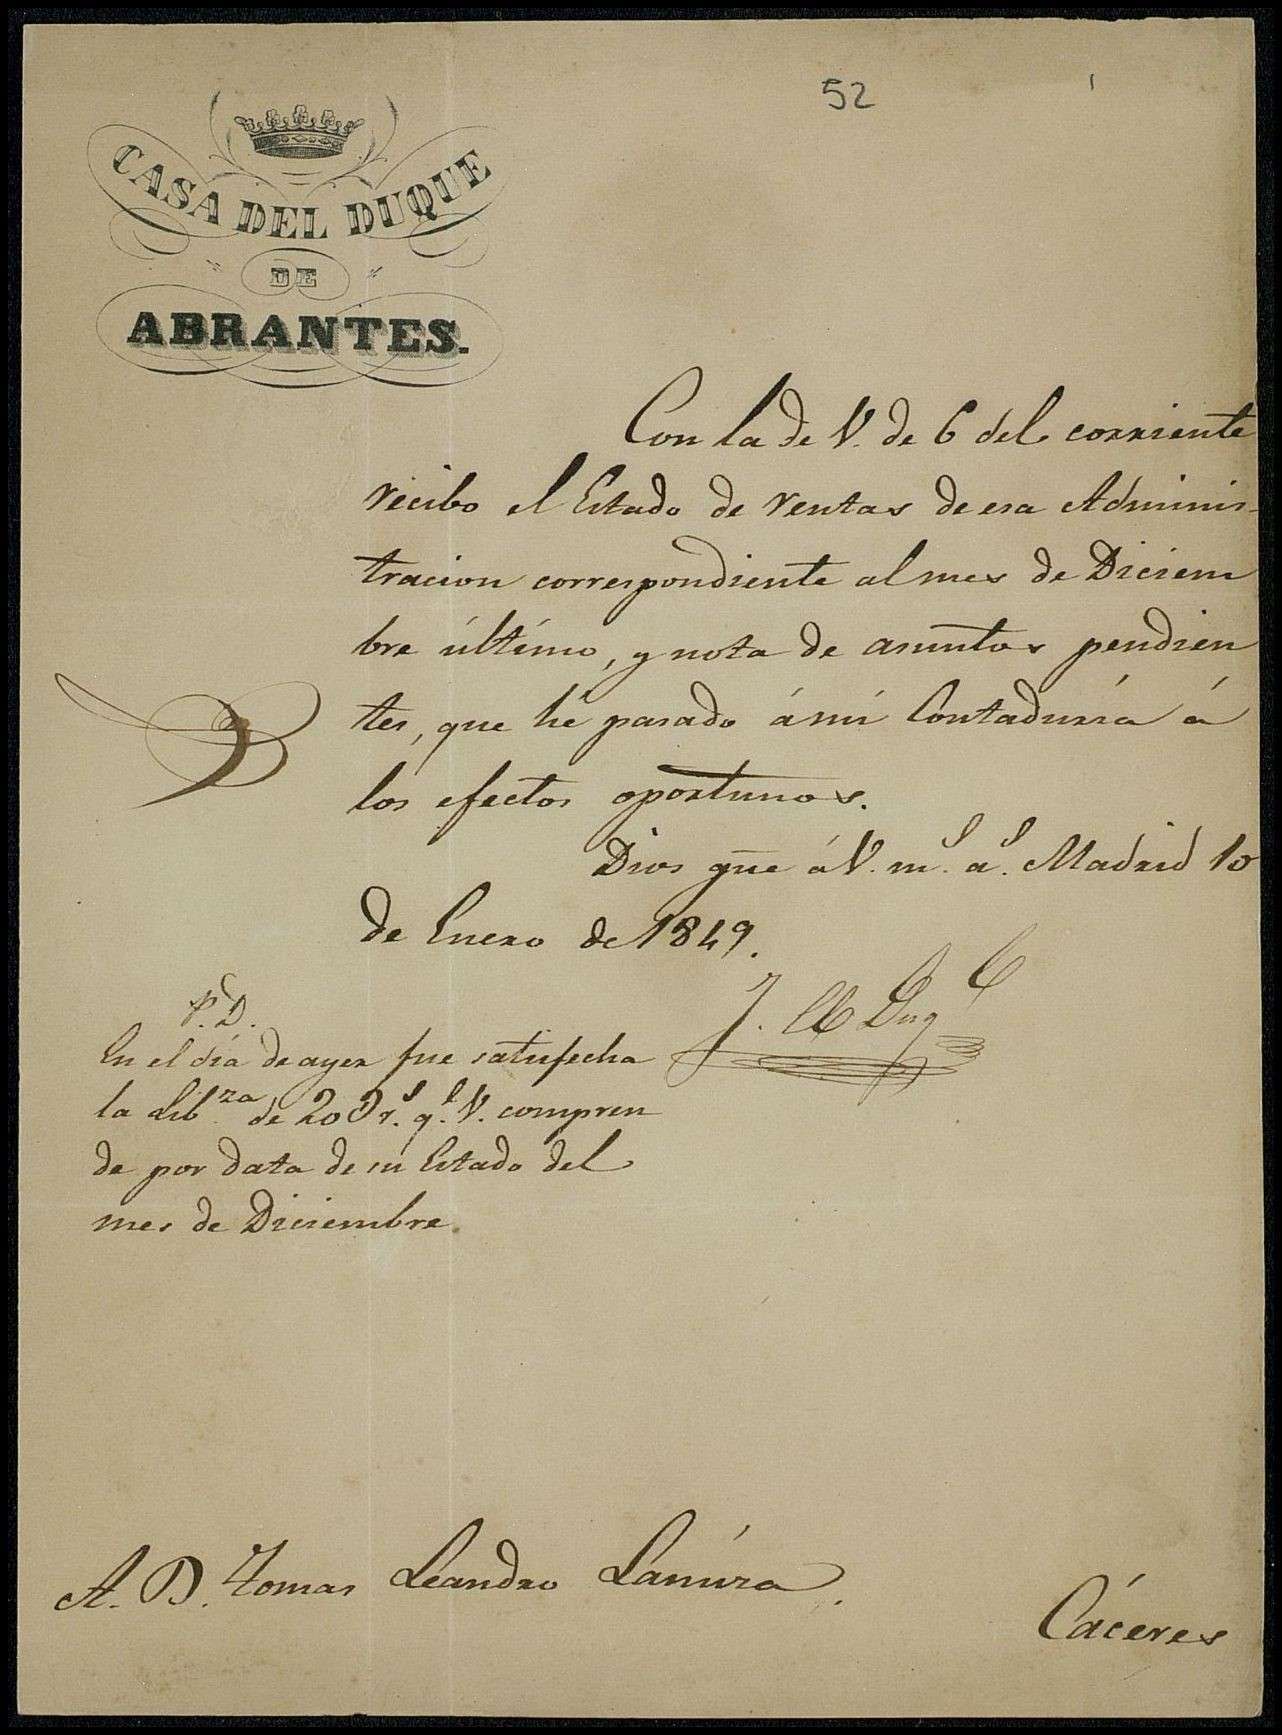 52
CASA DEL DUQUE
DE
ABRANTES.
Con la de V. de 6 del corriente
recibo el Estado de rentas de esa Adminis-
tracion correspondiente al mes de Diciem
bre último, y nota de asuntos pendien
tes, que hé pasado á mi Contaduria á
los efectos oportunos.
Dios gue á V. ms. as. Madrid 10
de Enero de 1849.
P.D.
En el dia de ayer fue satisfecha
la Lib.za de 200 rs. qe. V. compren
de por data de su Estado del
mes de Diciembre.
A. D. Tomas Leandro
Cáceres